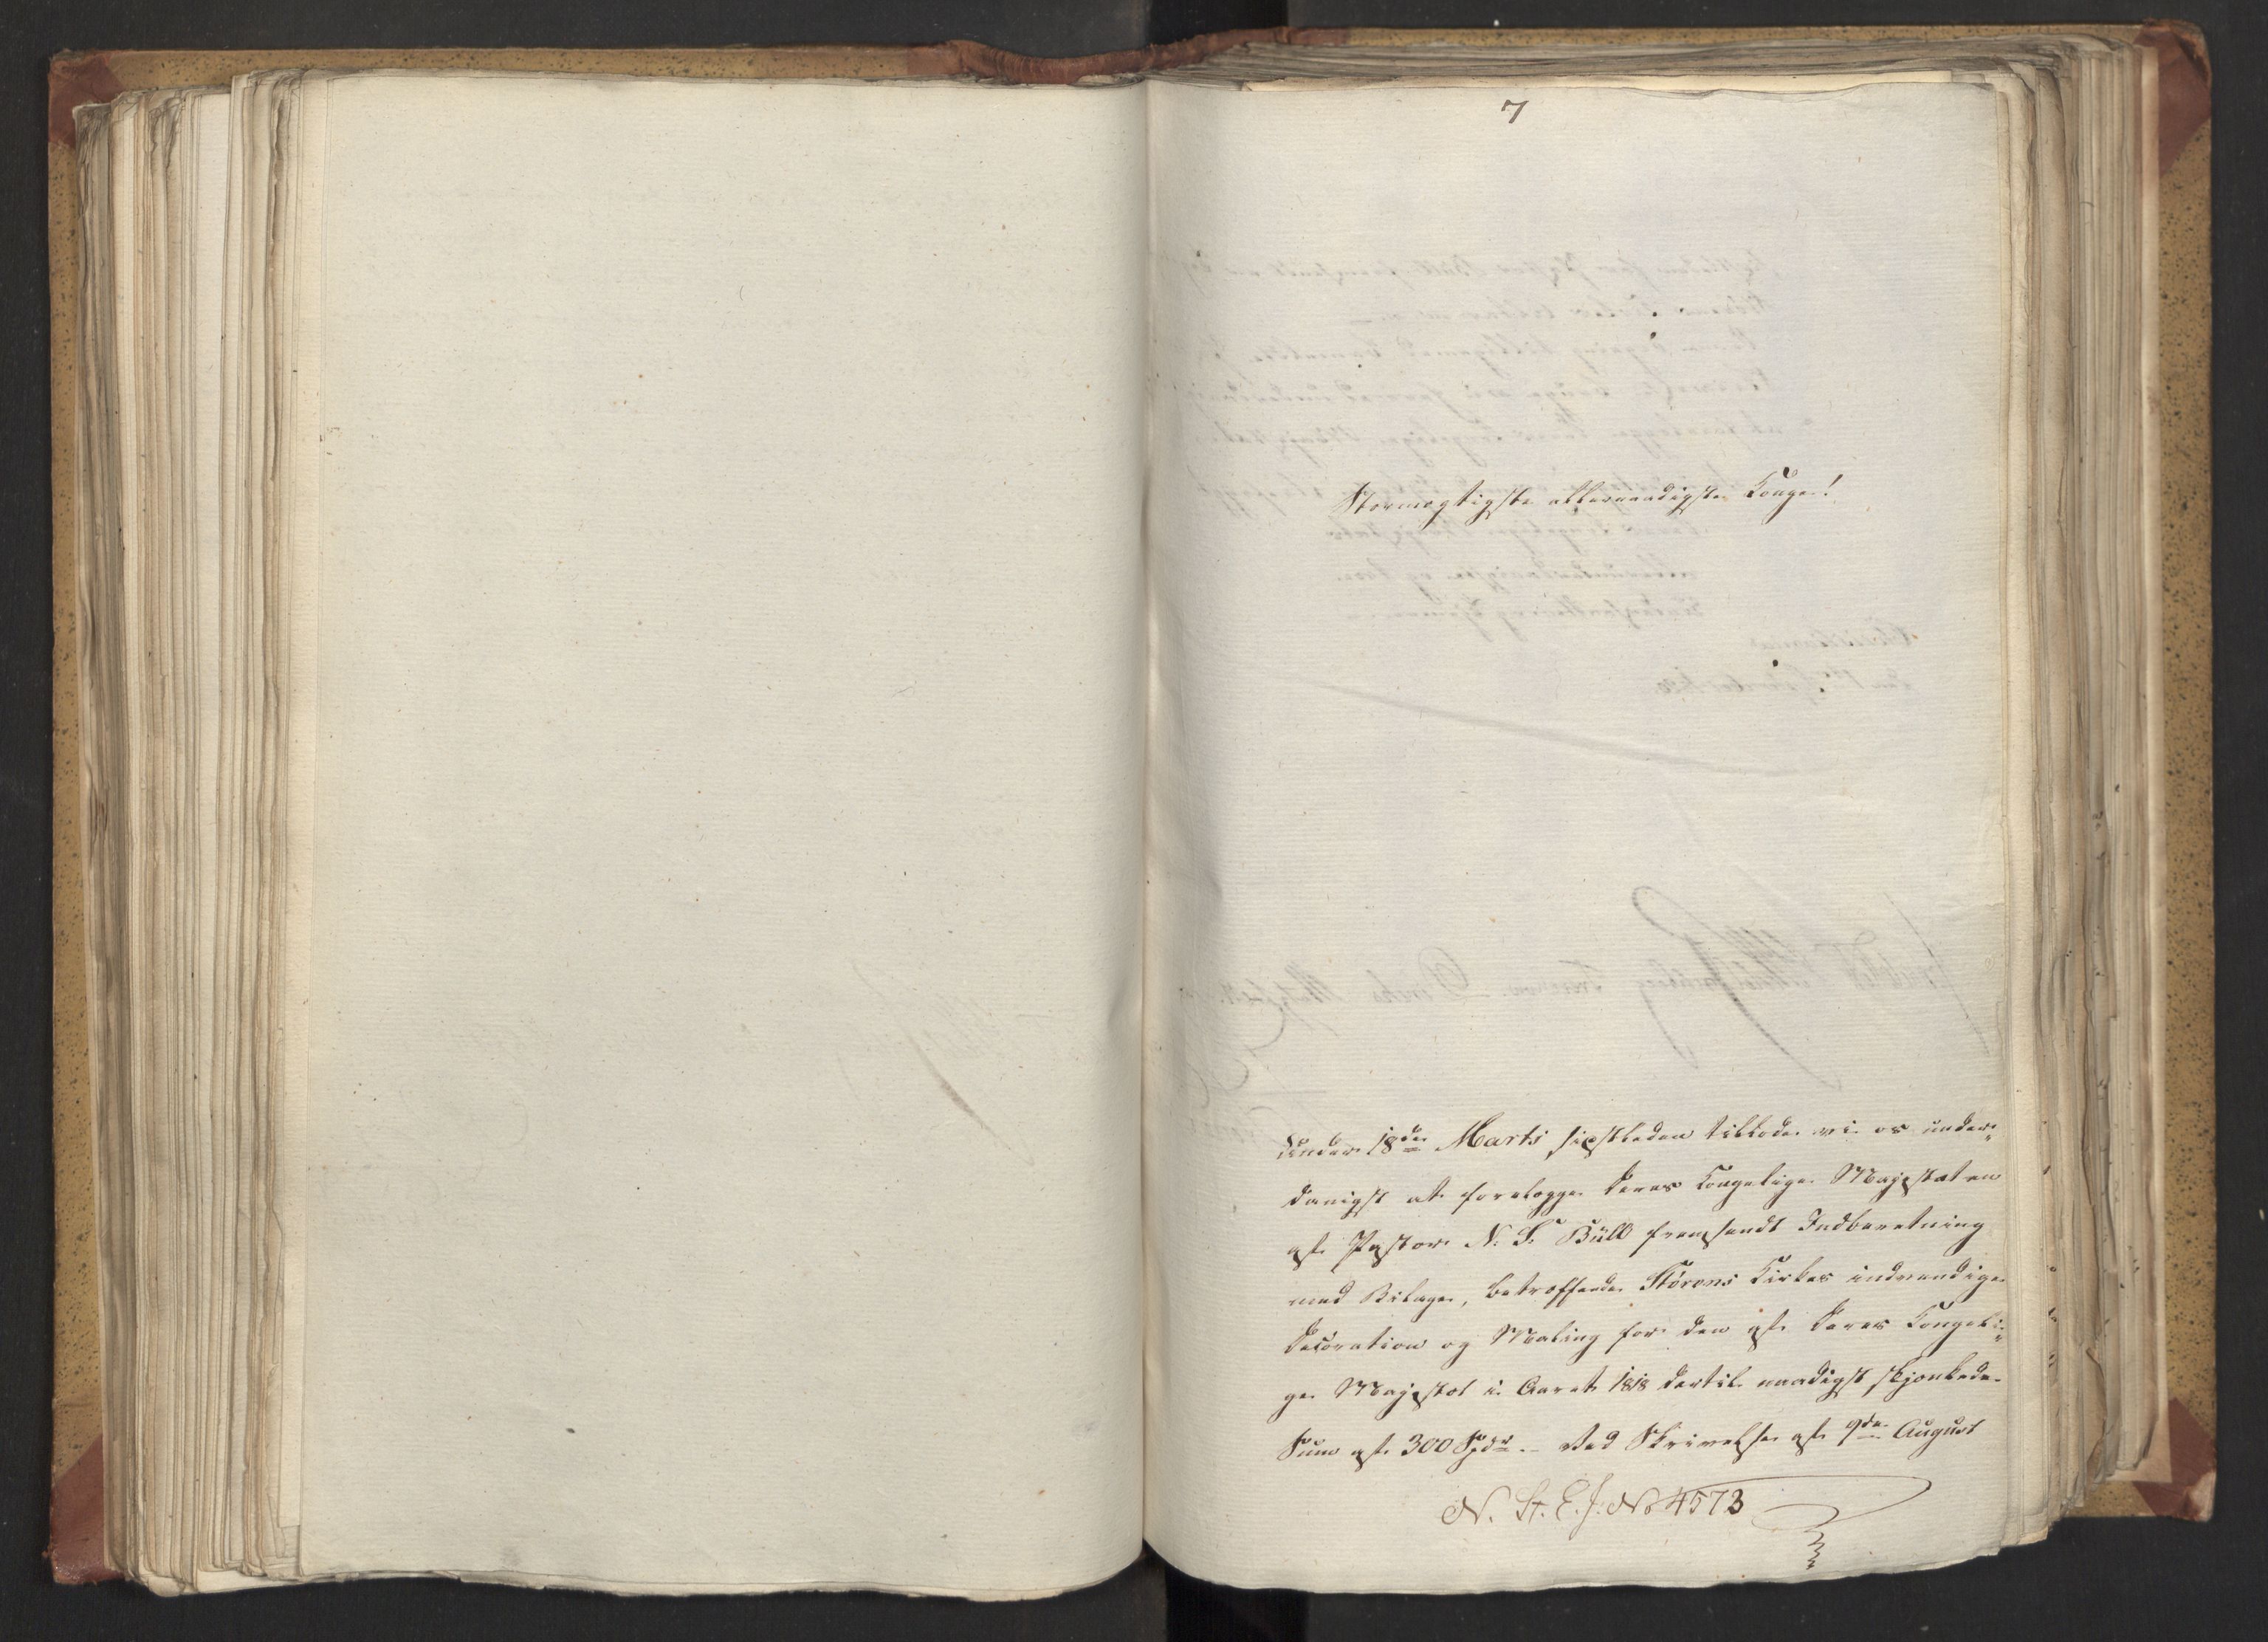 7
Stormægtigste allernaadigste Konge!
Under 18de Marts sidstleden tillode vi os under-
danigst at forelægge Deres Kongelige Majestæt en
af Pastor N. S. Bull fremsendt Indberetning
med Bilage, betræffende Størens Kirkes indvendige
Decoration og Maling for den af Deres Kongeli-
ge Majestæt i Aaret 1818 dertil naadigst skjænkede
Sum af 300 Spdr. – Ved Skrivelse af 9de August
N. St. E. J. No 4573